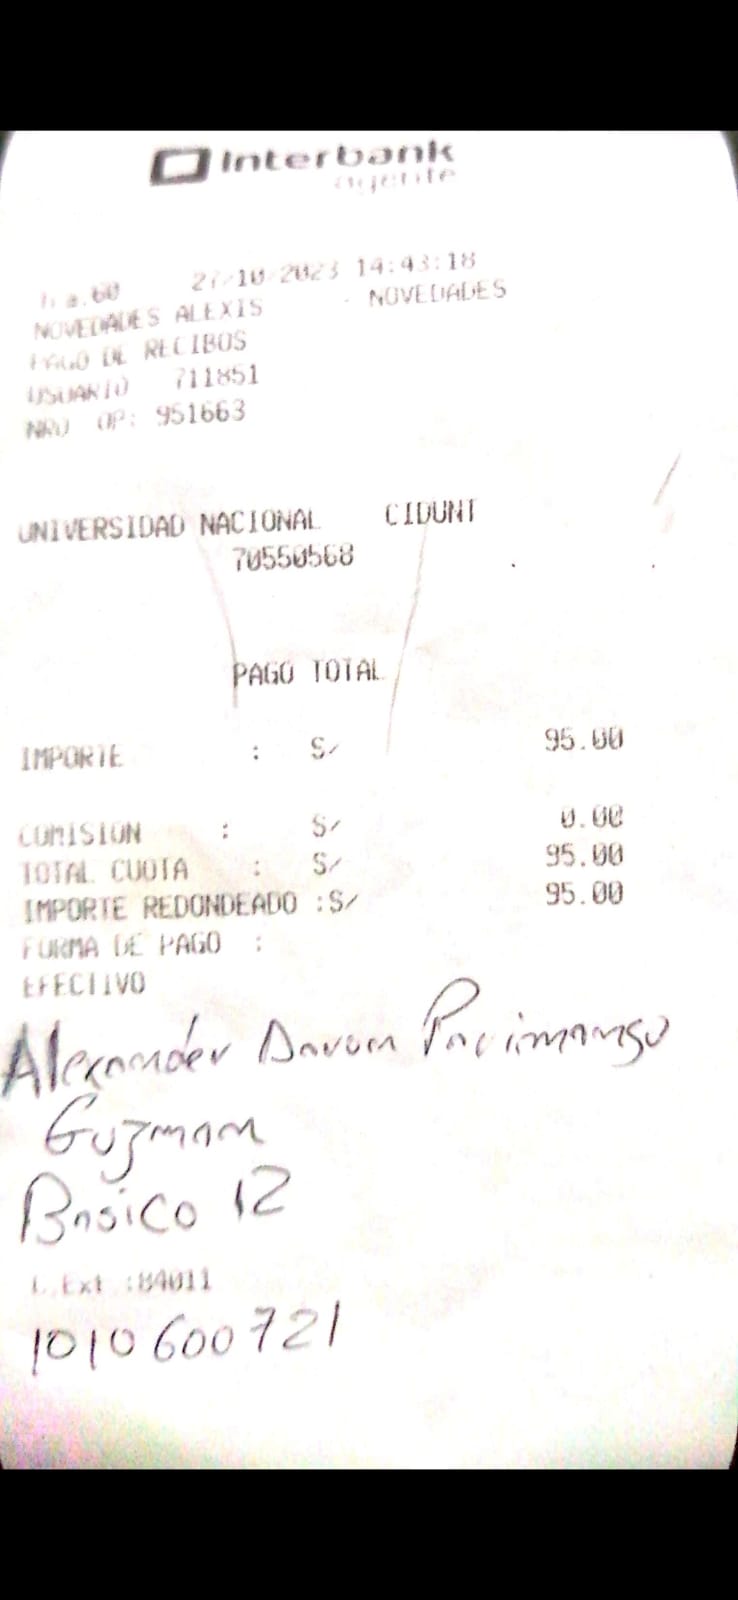 Interbank
agente
27-10-2023 14:43:18
NOVEDADES ALEXIS - NOVEDADES
PAGO DE RECIBOS
USUARIO 711851
NRO OP: 951663
UNIVERSIDAD NACIONAL CIDUNT
70550568
PAGO TOTAL
IMPORTE : S/ 95.00
COMISION : S/ 0.00
TOTAL CUOTA : S/ 95.00
IMPORTE REDONDEADO :S/ 95.00
FORMA DE PAGO :
EFECTIVO
Alexander
Guzman
Basico 12
C.Ext :84011
1010600721